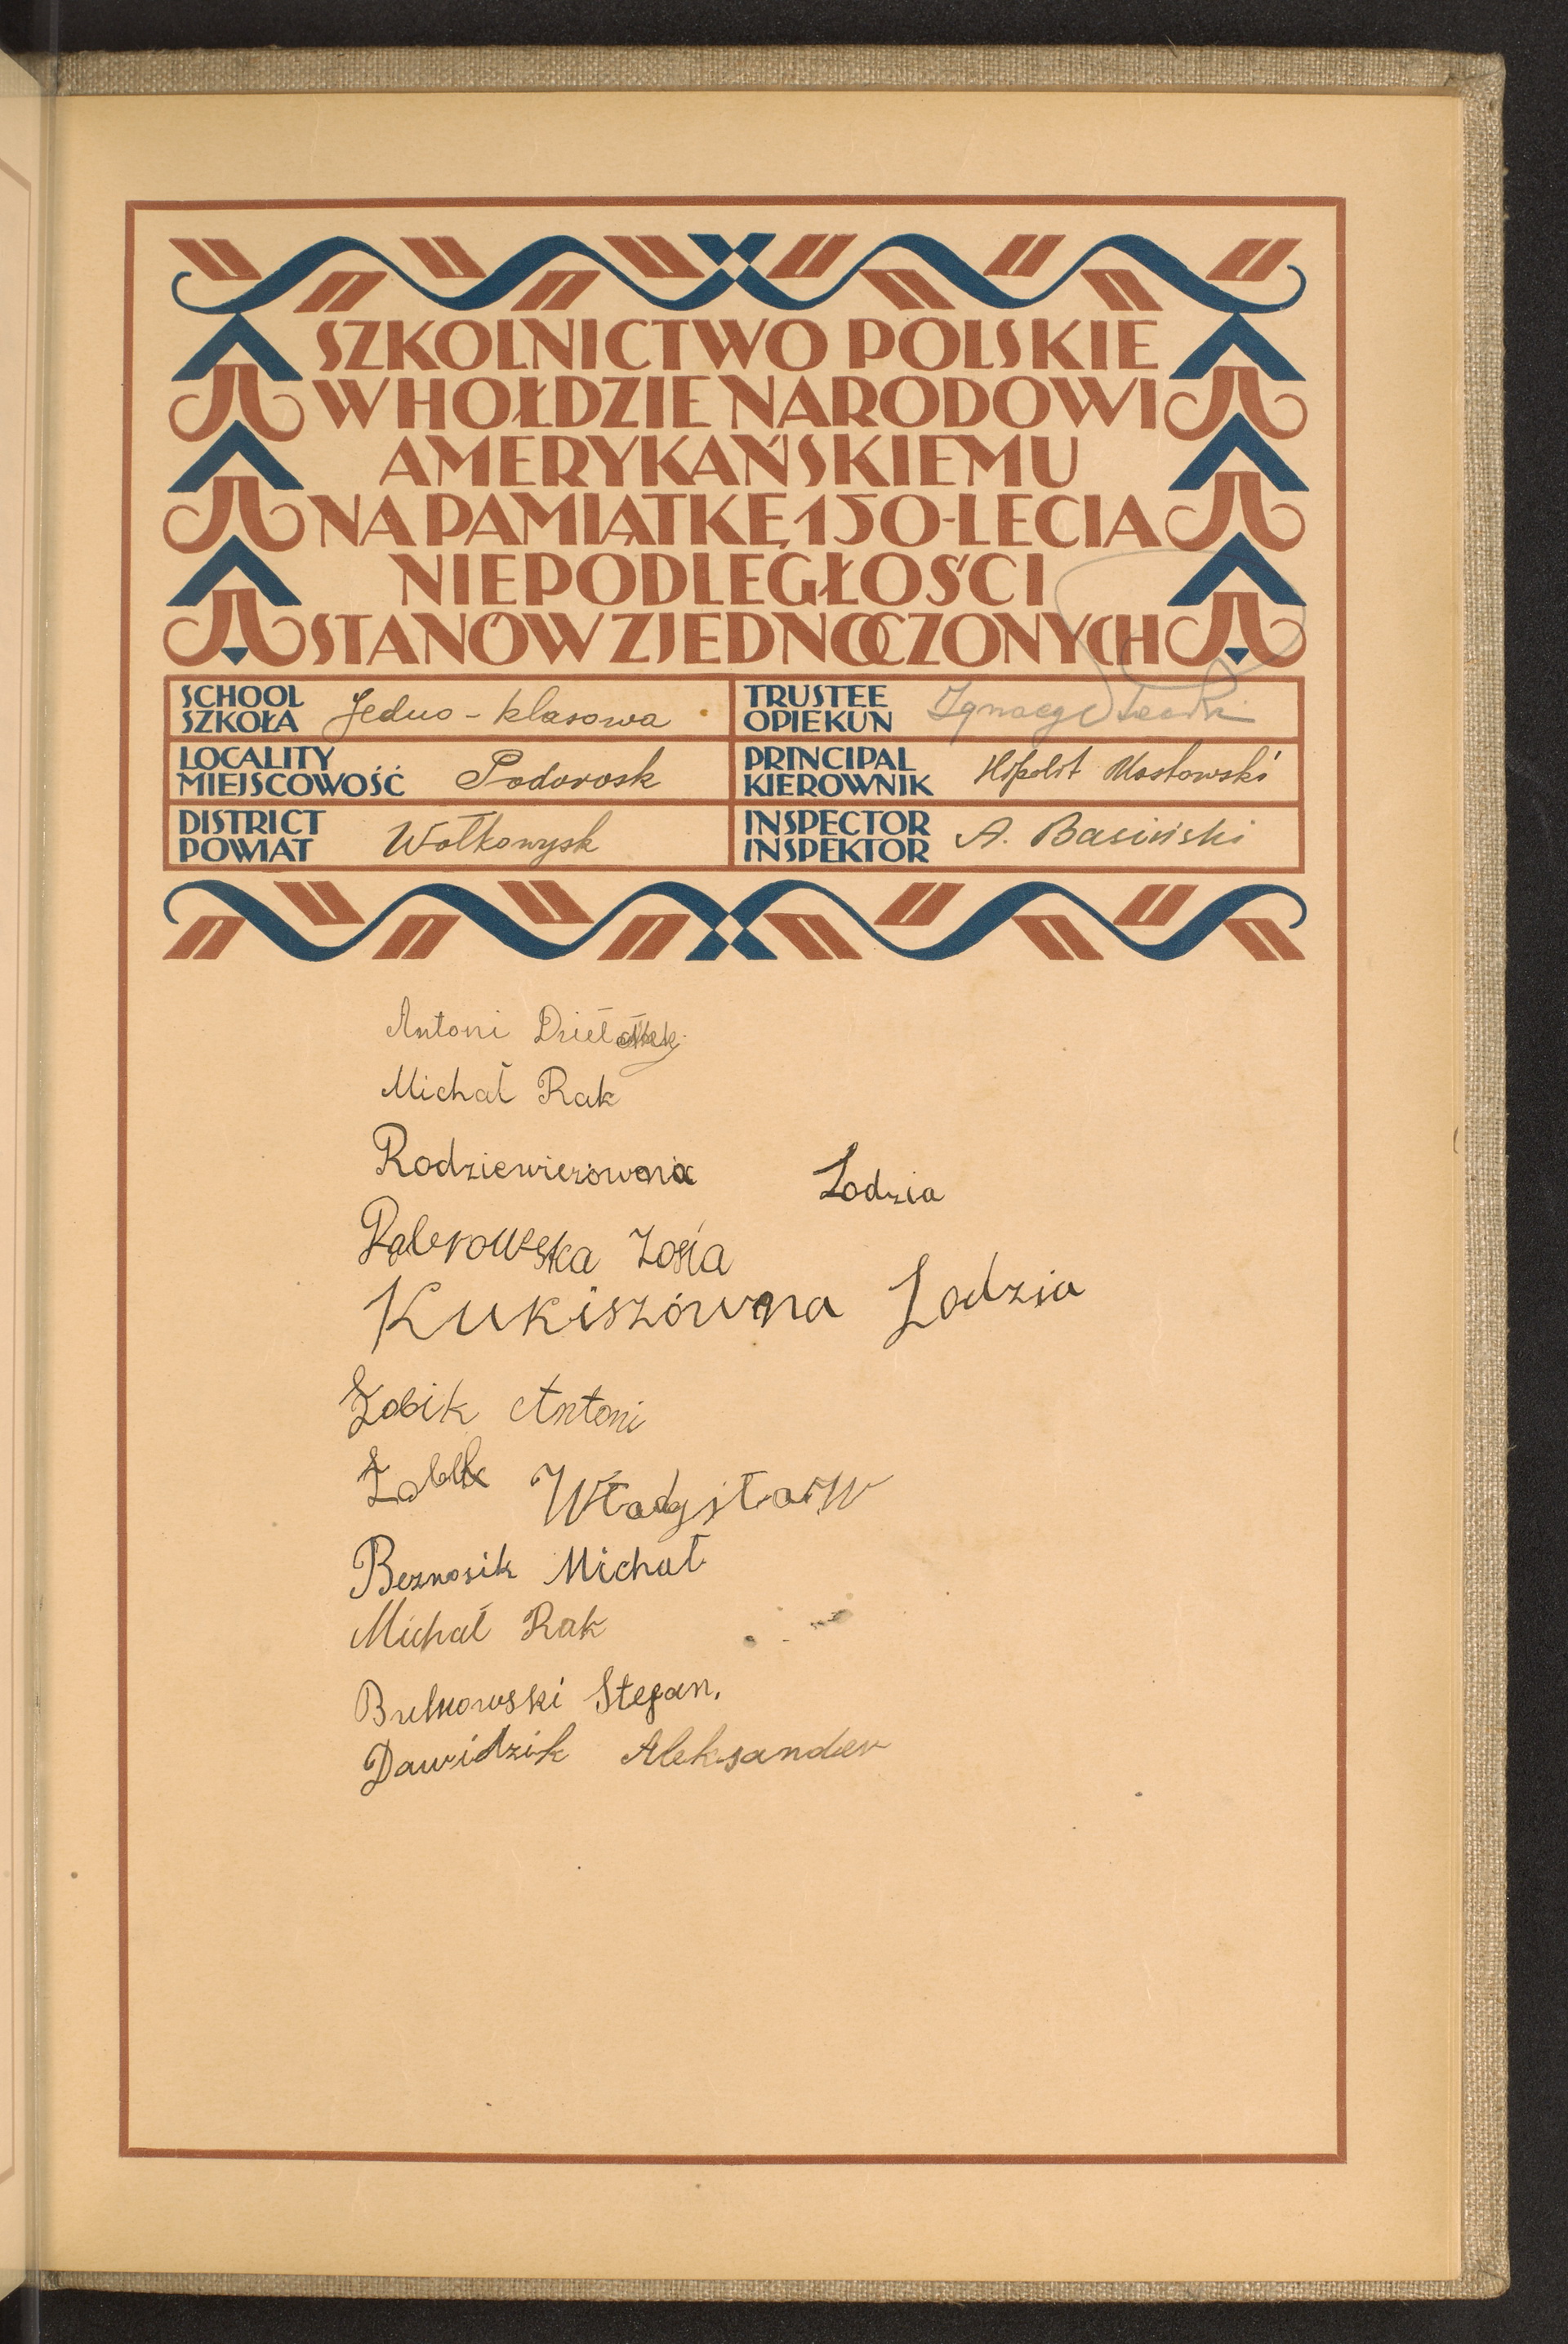 SZKOLNICTWO POLSKIE
W HOŁDZIE NARODOWI
AMERYKAŃSKIEMU
NA PAMIĄTKĘ 150-LECIA
NIEPODLEGŁOŚCI
STANÓW ZJEDNOCZONYCH
SCHOOL
SZKOŁA Jedno-klasowa
TRUSTEE
OPIEKUN Ignacy
LOCALITY
MIEJSCOWOŚĆ Podorosk
PRINCIPAL
KIEROWNIK Hipolit Mostowski
DISTRICT
POWIAT Wołkowysk
INSPECTOR
INSPEKTOR A. Basiński
Antoni
Michał Rak
Rodziewiczówna Lodzia
Zosia
Kukiszówna Lodzia
Żobik Antoni
Władysław
Beznosik Michał
Michał Rak
Stefan.
Dawidzik Aleksander